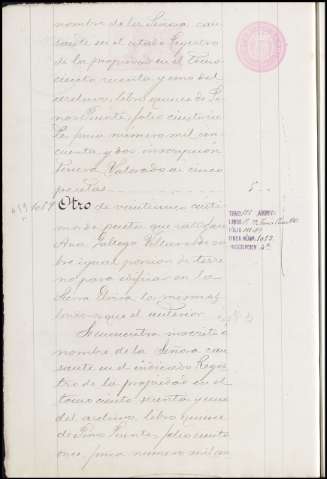 nombre de la Señora cau
sante en el citado Registro
de la propiedad en el tomo
ciento sesenta y uno del
archivo, libro quince de Pi
noso Puente, folio ciento
finca número mil cin
cuenta y dos inscripción
tercera. Valorado en cinco
pesetas 5
1057 Otro de veinticinco cénti
mos de peseta que satisface
Ana Gallego Villaverde so
bre igual porción de terre
no para edificar en la
Sierra Elvira los mismos
linderos que el anterior
Se encuentra inscrito á
nombre de la Señora cau
sante en el indicado Regis
tro de la propiedad en el
tomo ciento sesenta y uno
del archivo, libro quince
de Pinos Puente, folio ciento
once, finca número mil cin
TOMO 161 ARCHIVO
LIBRO 15 de Pinos Puente
FOLIO 111
FINCA NÚM. 1053
INSCRIPCIÓN 3ª